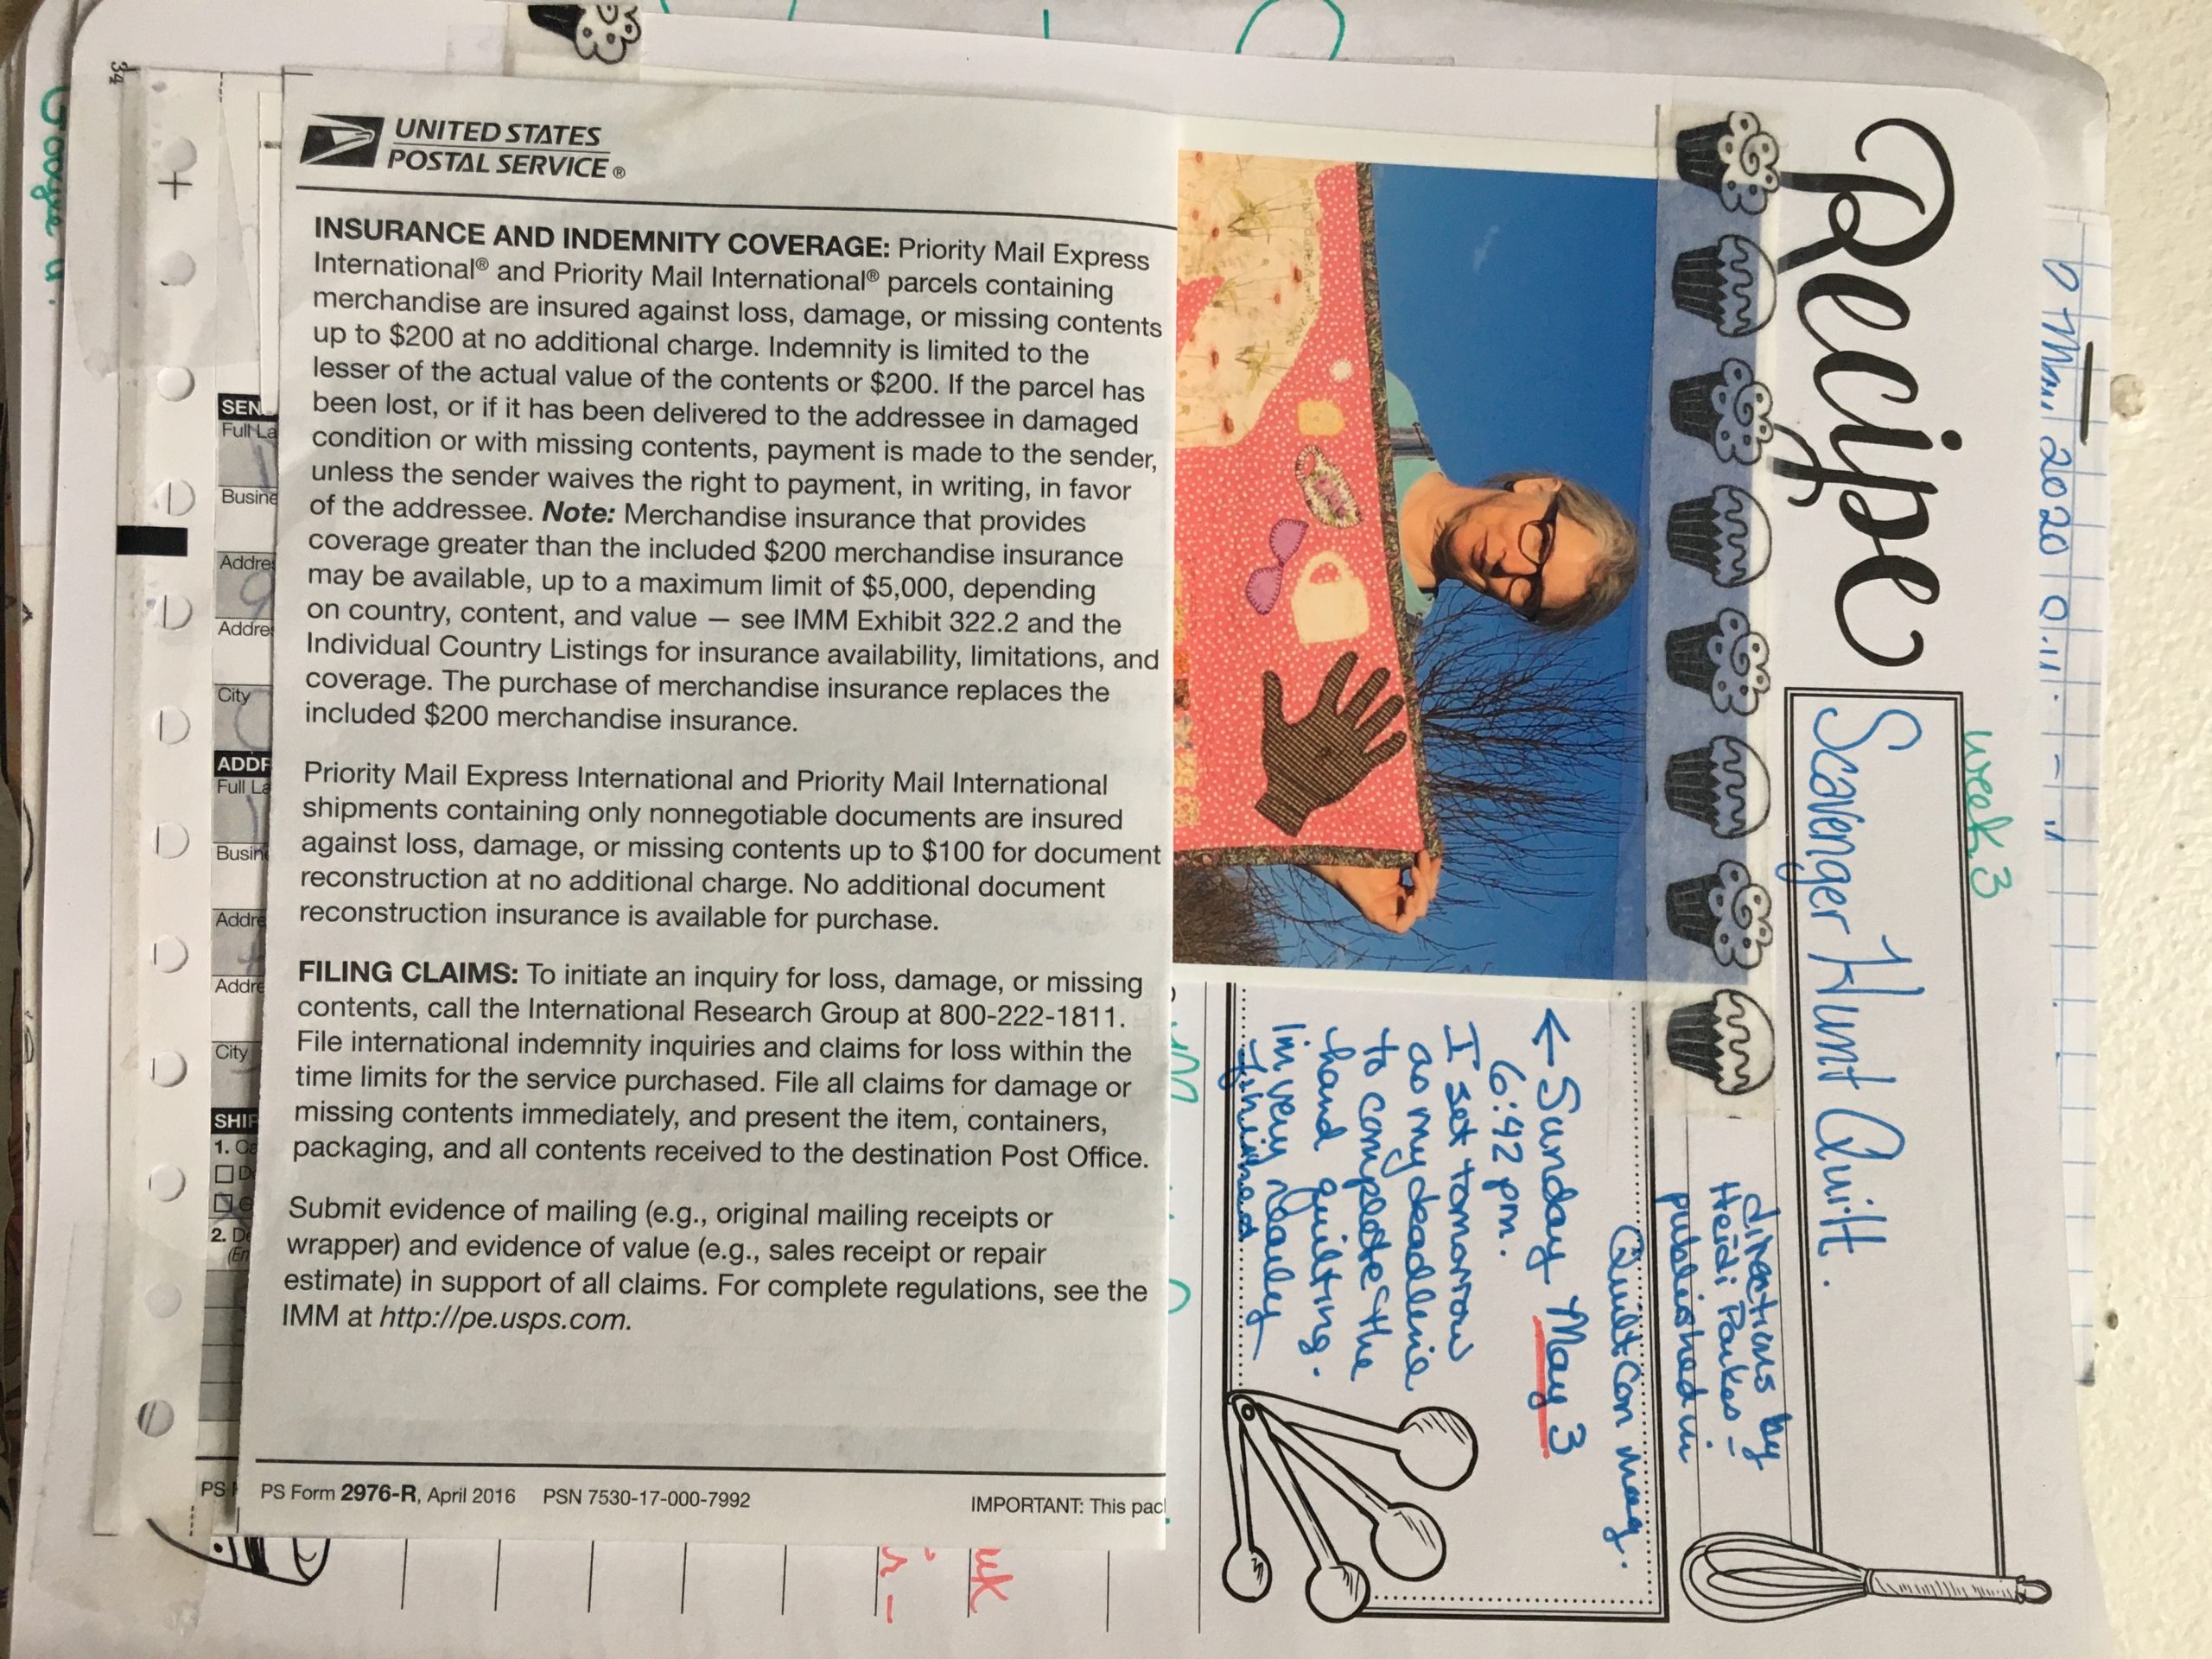 UNITED STATES
POSTAL SERVICE®
INSURANCE AND INDEMNITY COVERAGE: Priority Mail Express
International® and Priority Mail International® parcels containing
merchandise are insured against loss, damage, or missing contents
up to $200 at no additional charge. Indemnity is limited to the
lesser of the actual value of the contents or $200. If the parcel has
been lost, or if it has been delivered to the addressee in damaged
condition or with missing contents, payment is made to the sender,
unless the sender waives the right to payment, in writing, in favor
of the addressee. Note: Merchandise insurance that provides
coverage greater than the included $200 merchandise insurance
may be available, up to a maximum limit of $5,000, depending
on country, content, and value — see IMM Exhibit 322.2 and the
Individual Country Listings for insurance availability, limitations, and
coverage. The purchase of merchandise insurance replaces the
included $200 merchandise insurance.
Priority Mail Express International and Priority Mail International
shipments containing only nonnegotiable documents are insured
against loss, damage, or missing contents up to $100 for document
reconstruction at no additional charge. No additional document
reconstruction insurance is available for purchase.
FILING CLAIMS: To initiate an inquiry for loss, damage, or missing
contents, call the International Research Group at 800-222-1811.
File international indemnity inquiries and claims for loss within the
time limits for the service purchased. File all claims for damage or
missing contents immediately, and present the item, containers,
packaging, and all contents received to the destination Post Office.
Submit evidence of mailing (e.g., original mailing receipts or
wrapper) and evidence of value (e.g., sales receipt or repair
estimate) in support of all claims. For complete regulations, see the
IMM at http://pe.usps.com.
PS Form 2976-R, April 2016 PSN 7530-17-000-7992
IMPORTANT: This
City
City
1.
2.
PS
34
2020
week 3
Recipe
Scavenger Hunt Quilt.
directions by
Heidi Parkes -
published in
QuiltCon mag.
← Sunday May 3
6:42 pm.
I set tomorrow
as my deadline
to complete the
hand quilting.
I'm very nearly
finished